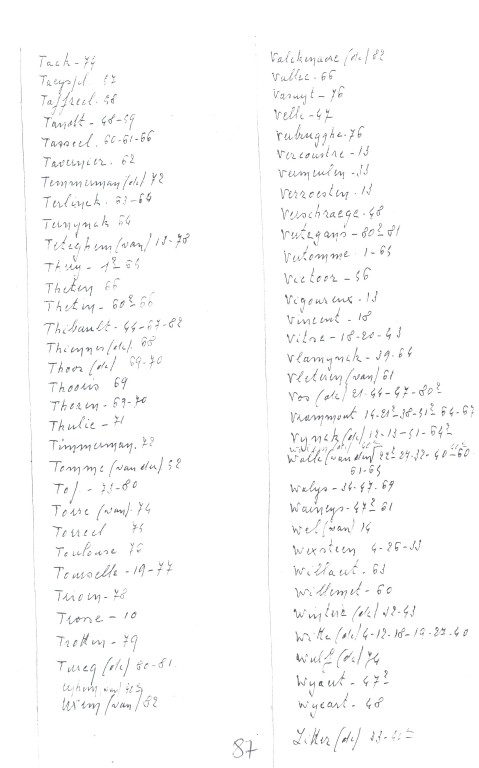 Tack - 74
Taeysel 67
Taffreel. 68
Tandt - 48-59
Tasseel. 60-61-66
Tavernier. 62
Temmerman (de) 72
Terlynck. 63-64
Ternynck 64
Teteghem (van) 13-78
Thery - 1² 65
Theten 66
Theten - 60² 66
Thibault - 44-67-82
Thiennes (de). 68
Thoor (de) 69-70
Thooris 69
Thoren - 69-70
Thulie - 71
Timmerman. 72
Tomme (van der) 52
Top - 73-80
Torre (van). 74
Torreel 75
Toulouse 76
Tourselle - 19-77
Troen - 78
Trone - 10
Trotten - 79
Tureq (de) 80-81
Urem (van) 82
Valckenaere (de) 82
Vallee. 66
Vasuyt - 76
Velle - 47
Verbrugghe. 76
Vercoustre - 13
Vermeulen - 33
Verroesten. 13
Verschraege. 48
Vertegans - 80² 81
Vetomme. 1-65
Victoor - 56
Vigoureux. 13
Vincent - 18
Vitse - 18-20-43
Vlamynck - 39. 64
Vleteren (van) 61
Vos (de) 21. 44-47-80²
Vrammout 14-21²-38-51² 64-67
Vynck (de) 12-13-51-64²
Walle (van den) 22² 24.32-40-60
61-65
Walys - 34-47. 69
Waineys - 47² 61
Wel (van) 14
Wexsteen 4-26-33
Willaert - 63
Willemet - 60
Wintere (de) 42-43
Witte (de) 4-12-18-19-27-40
Wulf (de) 74
Wyaert - 47²
Wyeart - 48
Zitter (de)
87